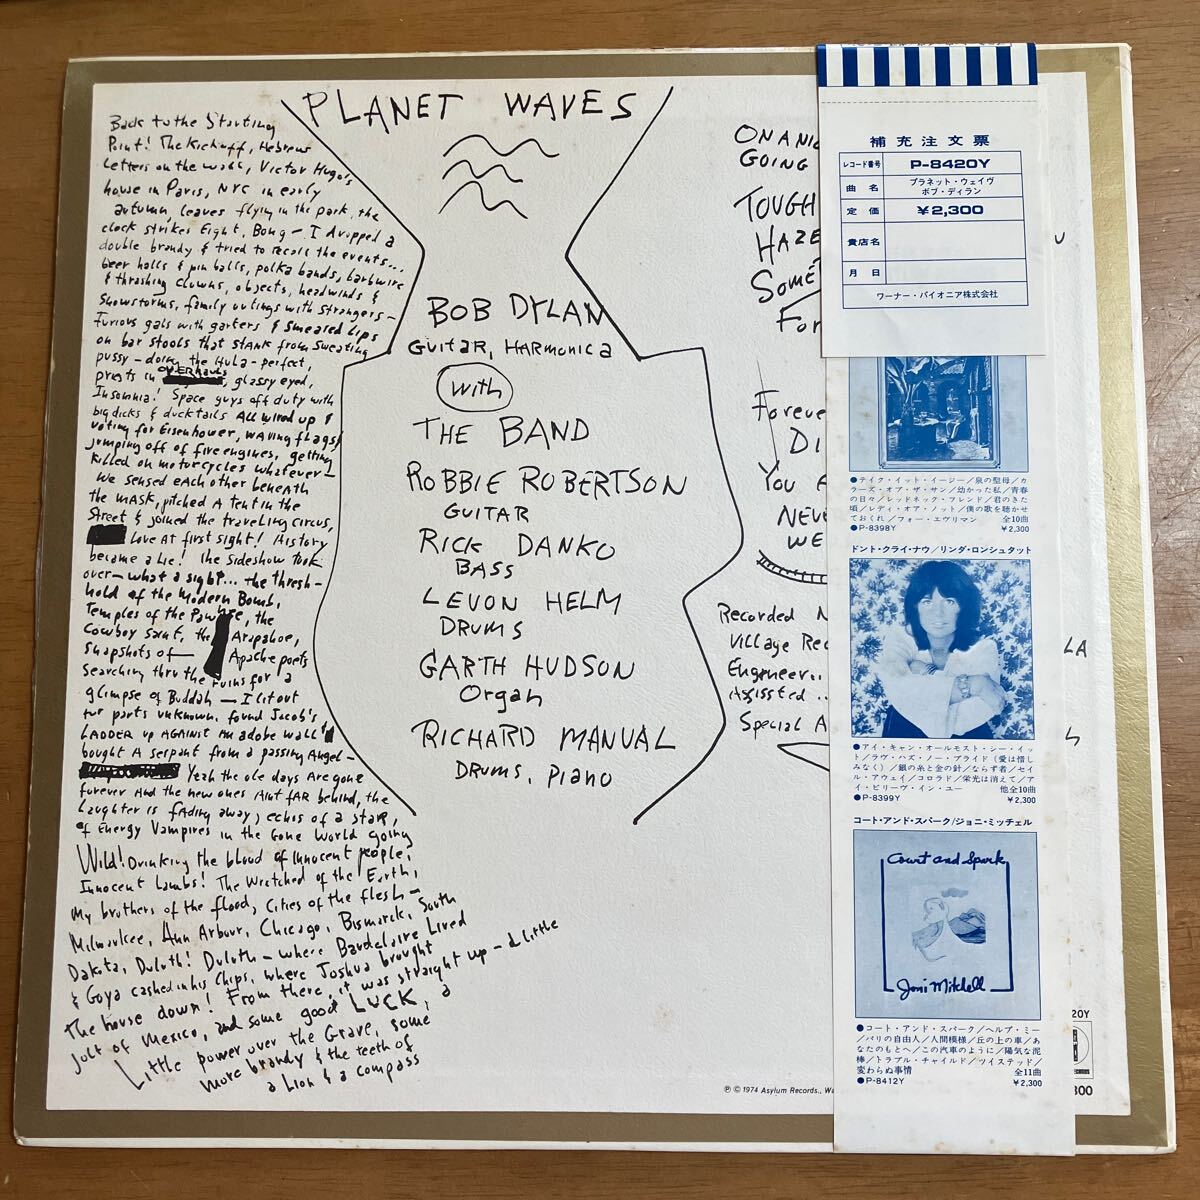 PLANET WAVES
Back to the Starting
Point! The Kickoff, Hebrew
Letters on the walls, Victor Hugo's
house in Paris, NYC in early
autumn, leaves flying in the park, the
clock strikes Eight, Bong - I dropped a
double brandy & tried to recall the events...
beer halls & pin balls, polka bands, barbwire
& thrashing clowns, objects, headwinds &
Snowstorms, family outings with strangers -
Furious gals with garters & smeared Lips
on bar stools that stank from sweating
pussy - doing the Hula - perfect,
priests in OVERHAULS, glassy eyed,
Insomnia! Space guys off duty with
big dicks & ducktails All wired up &
voting for Eisenhower, waving flags &
jumping off of fire engines, getting
killed on motorcycles whatever -
We sensed each other beneath
the mask, pitched a tent in the
Street & joined the traveling circus,
Love at first sight! History
became a Lie! The Sideshow Took
over - what a sight... the thresh-
hold of the Modern Bomb,
Temples of the Pawnee, the
Cowboy Saint, the Arapahoe,
Snapshots of - Apache poets
Searching thru the ruins for a
glimpse of Buddah - I lit out
for parts unknown, found Jacob's
LADDER up AGAINST an adobe wall &
bought A serpent from a passing Angel -
Yeah the ole days Are gone
forever And the new ones Aint fAR behind, the
Laughter is fAding away, echos of a staR,
of Energy Vampires in the Gone World going
Wild! Drinking the blood of innocent people,
Innocent Lambs! The Wretched of the Earth,
My brothers of the flood, Cities of the flesh -
Milwaukee, Ann Arbour, Chicago, Bismarck, South
Dakota, Duluth! Duluth - where Baudelaire Lived
& Goya cashed in his Chips, where Joshua brought
The house down! From there, it was straight up - a Little
jolt of Mexico, and some good LUCK, a
Little power over the Grave, some
more brandy & the teeth of
a Lion & a compass
BOB DYLAN
GUITAR, HARMONICA
With
THE BAND
ROBBIE ROBERTSON
GUITAR
RICK DANKO
BASS
LEVON HELM
DRUMS
GARTH HUDSON
Organ
RICHARD MANUAL
DRUMS, Piano
ON A
GOING
TOUGH
HAZE
For
Foreve
DI
You
NEVE
WE
Recorded
Village Rec
Engineer..
Assissted..
Special A
LA
℗ © 1974 Asylum Records., Wa
補充注文票
レコード番号 P-8420Y
曲名 プラネット・ウェイヴ
ボブ・ディラン
定価 ¥2,300
貴店名
月日
ワーナー・パイオニア株式会社
●テイク・イット・イージー/泉の聖母/カ
ラーズ・オブ・ザ・サン/幼かった私/青春
の日々/レッドネック・フレンド/君のきた
頃/レディ・オア・ノット/僕の歌を聴かせ
ておくれ/フォー・エヴリマン 全10曲
●P-8398Y ¥2,300
ドント・クライ・ナウ/リンダ・ロンシュタット
●アイ・キャン・オールモスト・シー・イッ
ト/ラヴ・ハズ・ノー・プライド(愛は惜し
みなく)/銀の糸と金の針/ならず者/セイ
ル・アウェイ/コロラド/栄光は消えて/ア
イ・ビリーヴ・イン・ユー 他全10曲
●P-8399Y ¥2,300
コート・アンド・スパーク/ジョニ・ミッチェル
Court and Spark
Joni Mitchell
●コート・アンド・スパーク/ヘルプ・ミー
/パリの自由人/人間模様/丘の上の車/あ
なたのもとへ/この汽車のように/陽気な泥
棒/トラブル・チャイルド/ツイステッド/
変わらぬ事情 全11曲
●P-8412Y ¥2,300
20Y
300